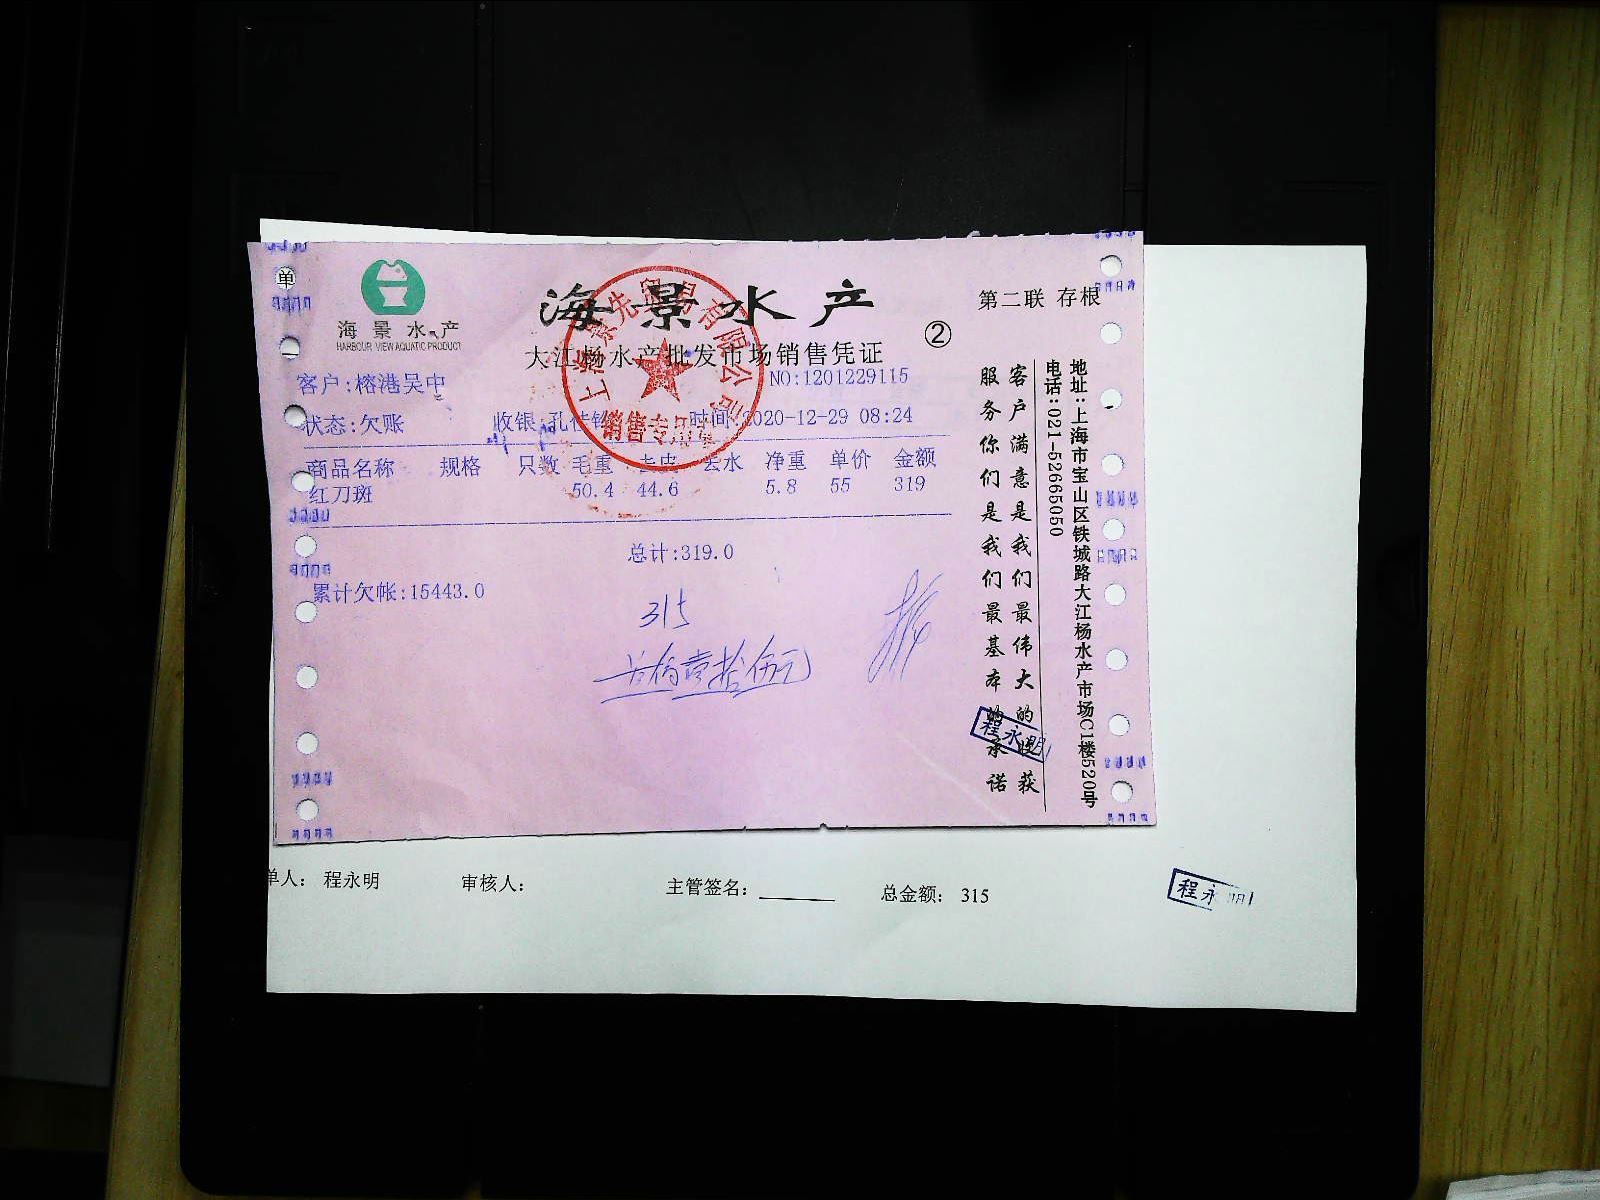 单
海景水产
HARBOUR VIEW AQUATIC PRODUCT
海景水产
大江杨水产批发市场销售凭证
②
第二联 存根
NO:1201229115
客户:榕港吴中
状态:欠账 收银:孔佳 时间:2020-12-29 08:24
商品名称 规格 只数 毛重 去皮 去水 净重 单价 金额
红刀斑 50.4 44.6 5.8 55 319
总计:319.0
累计欠帐:15443.0
315
叁佰壹拾伍元
上海景先贸易有限公司
销售专用章
客户满意是我们最伟大的 获
服务你们是我们最基本的承诺
地址:上海市宝山区铁城路大江杨水产市场C1楼520号
电话:021-52665050
程永明
单人: 程永明 审核人: 主管签名: 总金额: 315
程永明